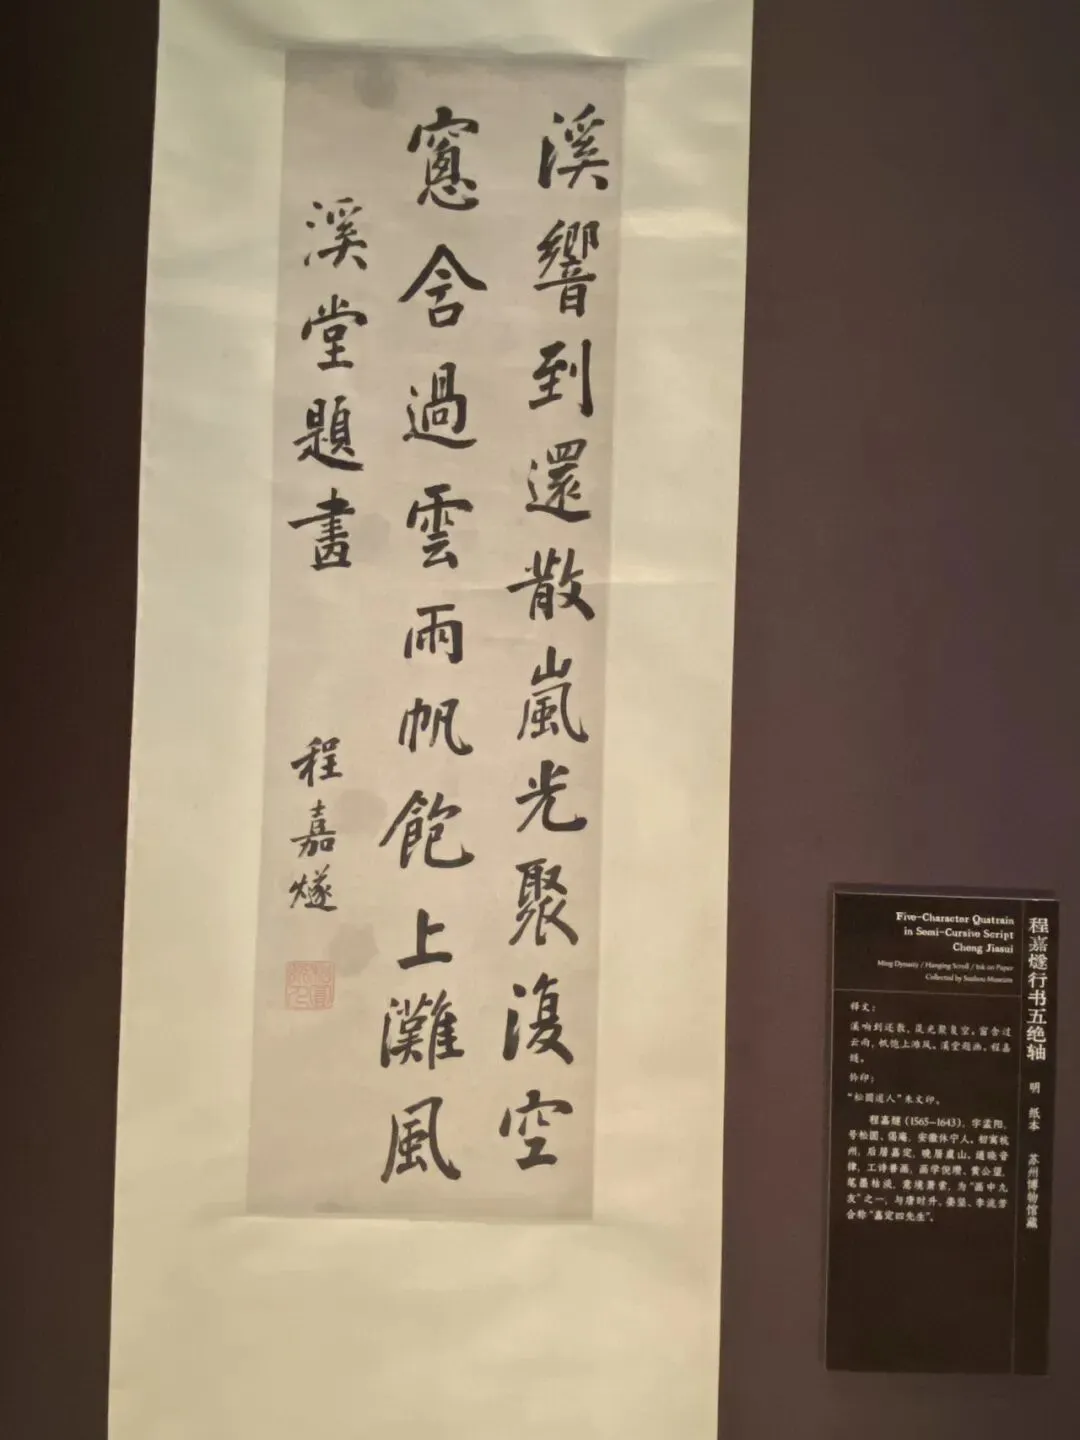 溪響到還散嵐光聚復空
窻含過雲雨帆飽上灘風
溪堂題畫
程嘉燧
程嘉燧行书五绝轴 明 纸本 苏州博物馆藏
Five-Character Quatrain
in Semi-Cursive Script
Cheng Jiasui
Ming Dynasty / Hanging Scroll / Ink on Paper
Collected by Suzhou Museum
释文:
溪响到还散，岚光聚复空。窗含过
云雨，帆饱上滩风。溪堂题画。程嘉
燧。
钤印:
“松圆道人”朱文印。
程嘉燧（1565—1643），字孟阳，
号松圆、偈庵，安徽休宁人，初寓杭
州，后居嘉定，晚居虞山。通晓音
律，工诗善画，画学倪瓒、黄公望，
笔墨枯淡，意境萧索，为“画中九
友”之一，与唐时升、娄坚、李流芳
合称“嘉定四先生”。